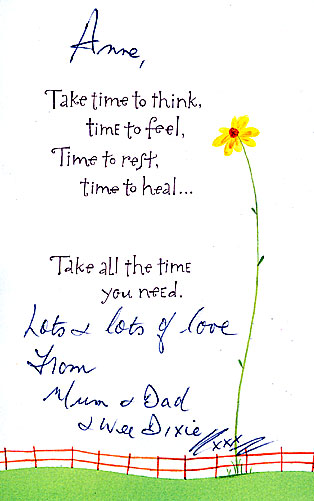 Anne,
Take time to think,
time to feel,
Time to rest,
time to heal...
Take all the time
you need.
Lots & lots of love
From
Mum & Dad
& Wee Dixie
xxx